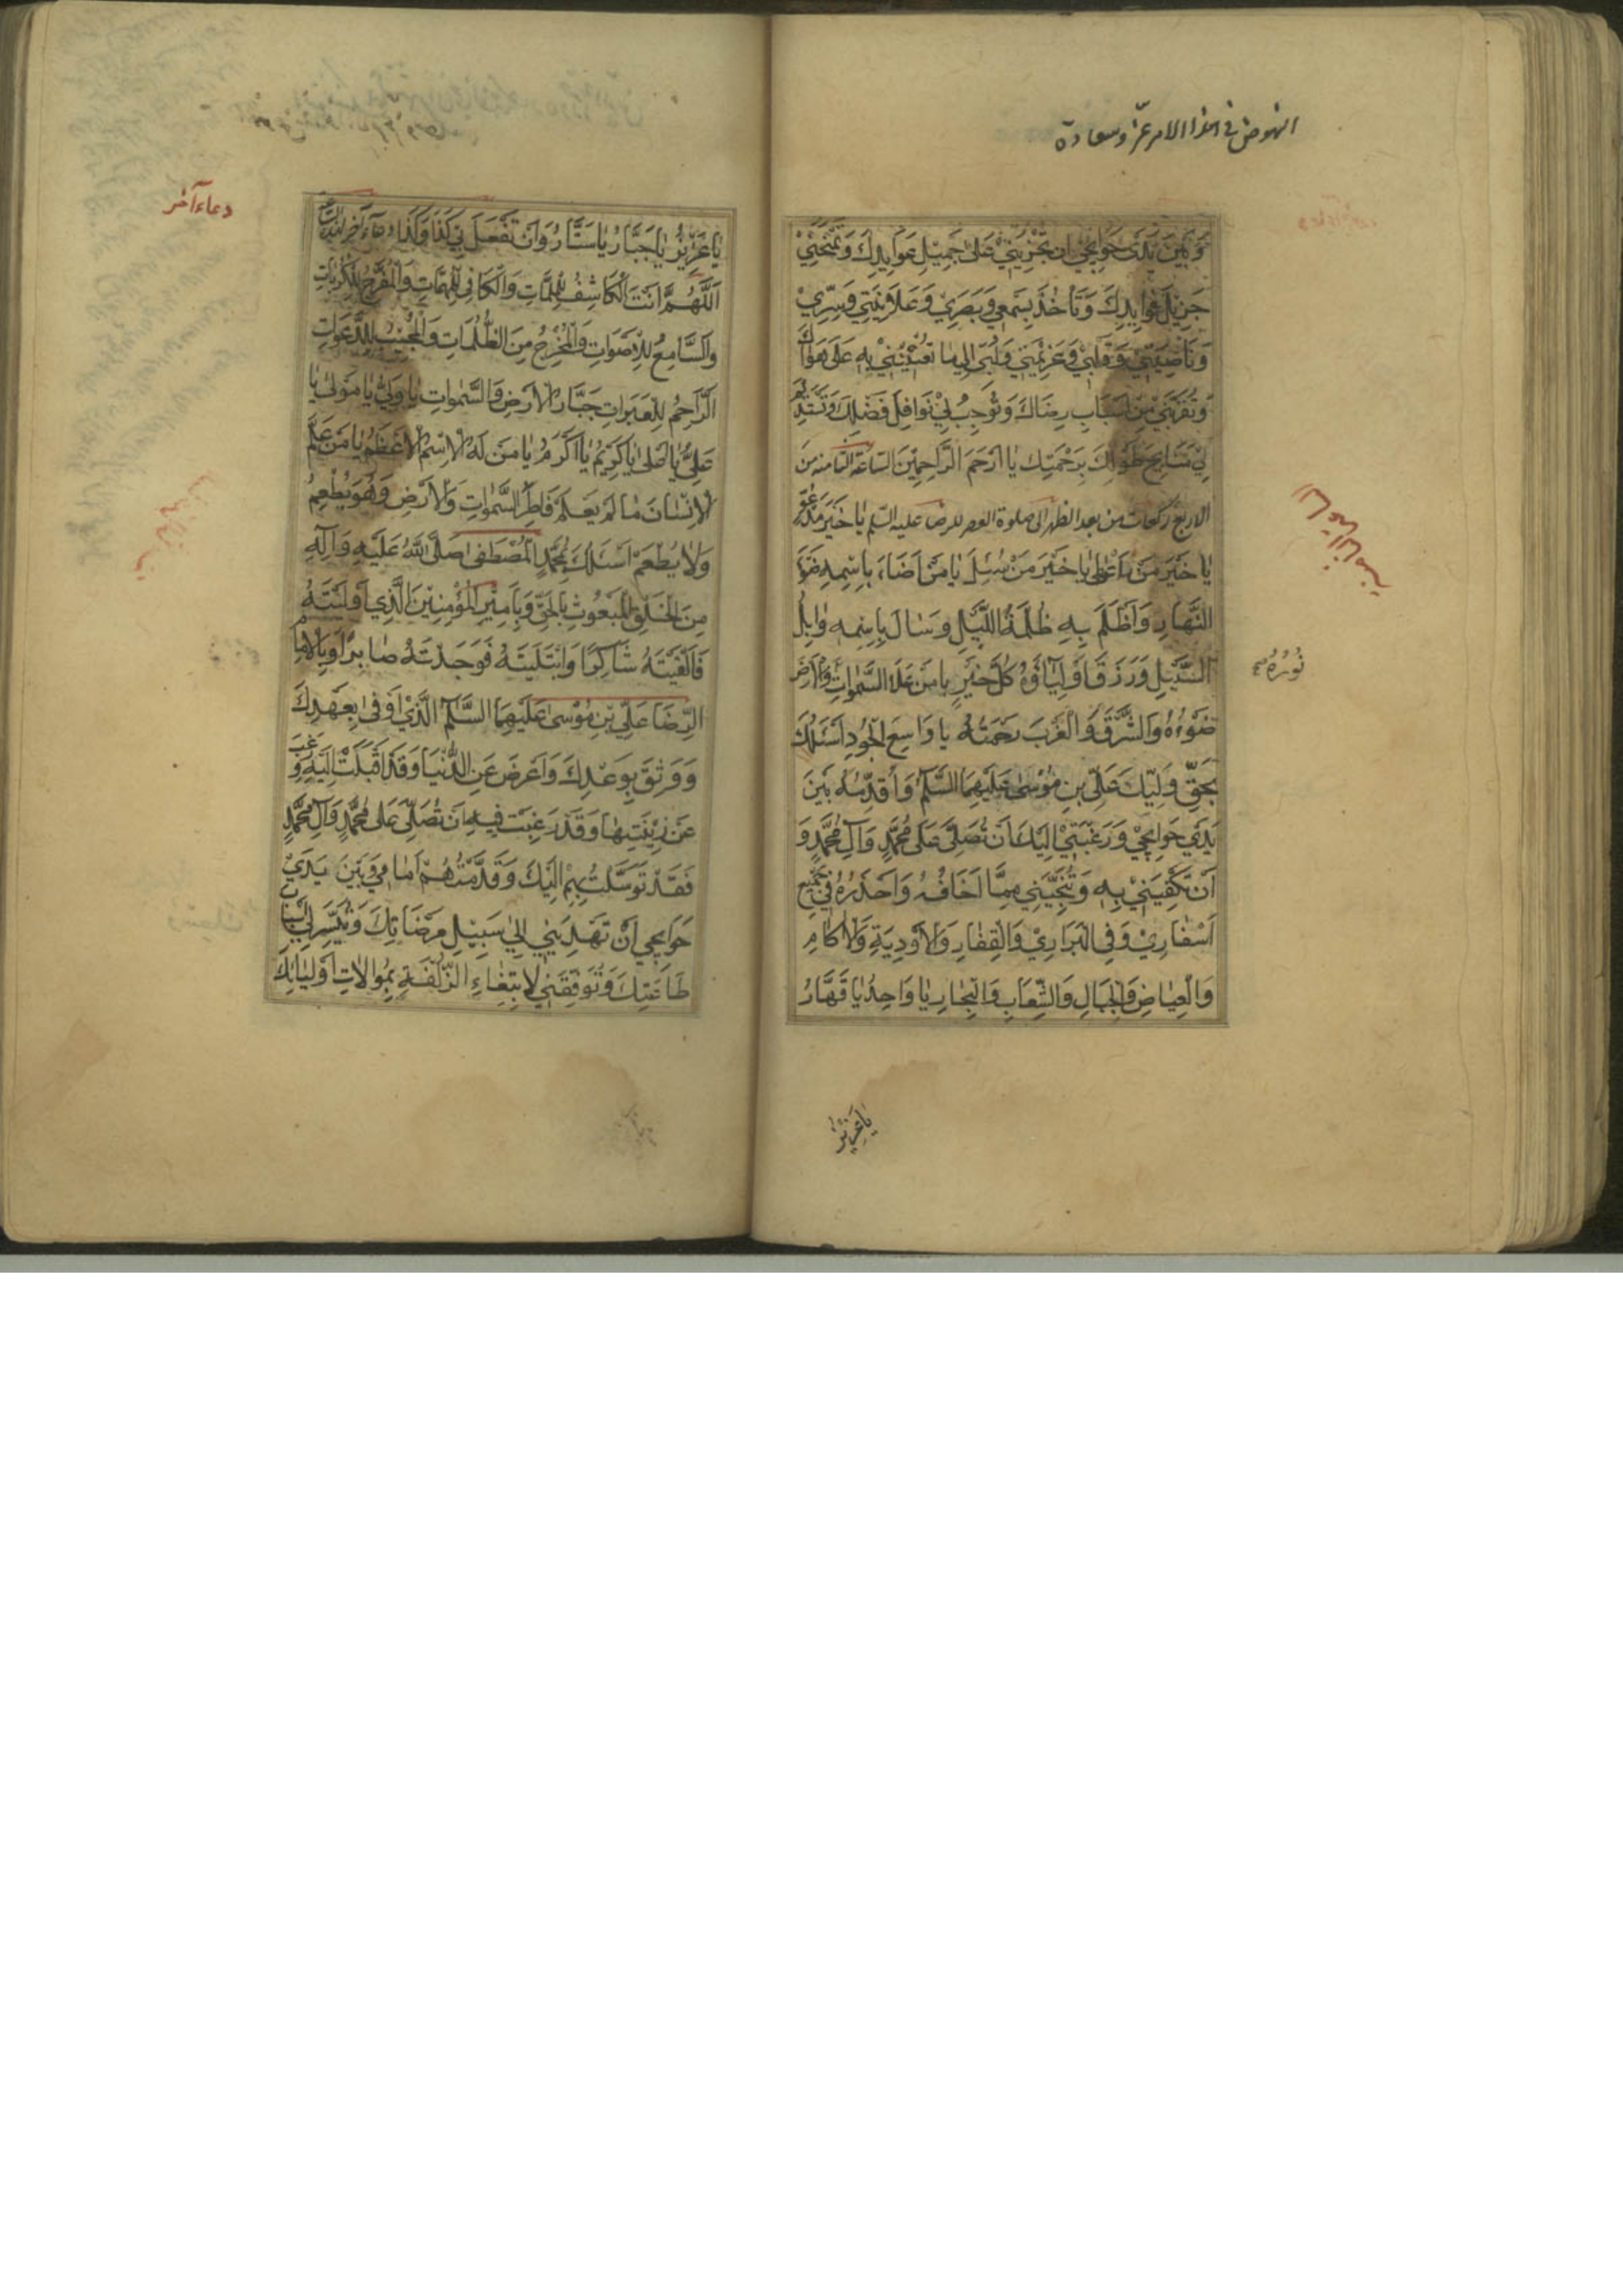 النهوض في هذا الامر عز وسعادة
وَبَيْنَ يَدَيْ حَوائِجي اَنْ تُجْرِيَني عَلى جَميلِ عَوايِدِكَ وَتَمْنَحَني
جَزيلَ فَوايِدِكَ وَتَأْخُذَ بِسَمْعي وَبَصَري وَعَلانِيَتي وَسِرّي
وَناصِيَتي وَقَلْبي وَعَزيمَتي وَلُبّي اِلى ما تُعينُني بِهِ عَلى هَواكَ
وَتُقَرِّبَني مِنْ اَسْبابِ رِضاكَ وَتُوجِبَ لي نَوافِلَ فَضْلِكَ وَتَسْتَديمَ
لي مَنايِحَ طَوْلِكَ بِرَحْمَتِكَ يا اَرْحَمَ الرّاحِمينَ الساعة الثامنة من
الاربع ركعات من بعد الظهر الى صلوة العصر للرضا عليه السلم يا خَيْرَ مَدْعُوٍّ
يا خَيْرَ مَنْ اَعْطى يا خَيْرَ مَنْ سُئِلَ يا مَنْ اَضاءَ بِاسْمِهِ ضَوْءُ
النَّهارِ وَاَظْلَمَ بِهِ ظُلْمَةُ اللَّيْلِ وَسالَ بِاسْمِهِ وابِلُ
السَّيْلِ وَرَزَقَ اَوْلِياؤُهُ كُلَّ خَيْرٍ يا مَنْ عَلَا السَّمواتِ وَالْاَرْضَ
نُورُهُ
ضَوْءُهُ وَالشَّرْقَ وَالْغَرْبَ رَحْمَتُهُ يا واسِعَ الْجُودِ اَسْئَلُكَ
بِحَقِّ وَلِيِّكَ عَلِيِّ بْنِ مُوسى عَلَيْهِمَا السَّلامُ وَاُقَدِّمُهُ بَيْنَ
يَدَيْ حَوائِجي وَرَغْبَتي اِلَيْكَ اَنْ تُصَلِّيَ عَلى مُحَمَّدٍ وَآلِ مُحَمَّدٍ وَ
اَنْ تَكْفِيَني بِهِ وَتُنْجِيَني مِمّا اَخافُهُ وَاَحْذَرُهُ في جَميعِ
اَسْفاري وَفِي الْبَراري وَالْقِفارِ وَالْاَوْدِيَةِ وَالْاكامِ
وَالْغِياضِ وَالْجِبالِ وَالشِّعابِ وَالْبِحارِ يا واحِدُ يا قَهّارُ
يا عَزيزُ
دعاء آخر
يا عَزيزُ يا جَبّارُ يا سَتّارُ وَاَنْ تَفْعَلَ بي كَذا وَكَذا دعاء آخر
اَللّهُمَّ اَنْتَ الْكاشِفُ لِلْمُلِمّاتِ وَالْكافي لِلْمُهِمّاتِ وَالْمُفَرِّجُ لِلْكُرُباتِ
وَالسّامِعُ لِلْاَصْواتِ وَالْمُخْرِجُ مِنَ الظُّلُماتِ وَالْمُجيبُ لِلدَّعَواتِ
الرّاحِمُ لِلْعَبَراتِ جَبّارُ الْاَرْضِ وَالسَّمواتِ يا وَلِيُّ يا مَوْلى يا
عَلِيُّ يا اَعْلى يا كَريمُ يا اَكْرَمُ يا مَنْ لَهُ الْاِسْمُ الْاَعْظَمُ يا مَنْ عَلَّمَ
الْاِنْسانَ ما لَمْ يَعْلَمْ فاطِرُ السَّمواتِ وَالْاَرْضِ وَهُوَ يُطْعِمُ
وَلا يُطْعَمُ اَسْئَلُكَ بِمُحَمَّدٍ الْمُصْطَفى صَلَّى اللهُ عَلَيْهِ وَآلِهِ
مِنَ الْخَلْقِ الْمَبْعُوثِ بِالْحَقِّ وَبِاَميرِ الْمُؤْمِنينَ الَّذي اَوْلَيْتَهُ
فَاَلْفَيْتَهُ شاكِرًا وَابْتَلَيْتَهُ فَوَجَدْتَهُ صابِرًا وَبِالْاِمامِ
الرِّضا عَلِيِّ بْنِ مُوسى عَلَيْهِمَا السَّلامُ الَّذي اَوْفى بِعَهْدِكَ
وَوَثِقَ بِوَعْدِكَ وَاَعْرَضَ عَنِ الدُّنْيا وَقَدْ اَقْبَلَتْ اِلَيْهِ وَرَغِبَ
عَنْ زينَتِها وَقَدْ رَغِبَتْ فيهِ اَنْ تُصَلِّيَ عَلى مُحَمَّدٍ وَآلِ مُحَمَّدٍ
فَقَدْ تَوَسَّلْتُ بِهِمْ اِلَيْكَ وَقَدَّمْتُهُمْ اَمامي وَبَيْنَ يَدَيْ
حَوائِجي اَنْ تَهْدِيَني اِلى سَبيلِ مَرْضاتِكَ وَتُيَسِّرَ لي اَسْبابَ
طاعَتِكَ وَتُوَفِّقَني لِابْتِغاءِ الزُّلْفَةِ بِمُوالاتِ اَوْلِيائِكَ